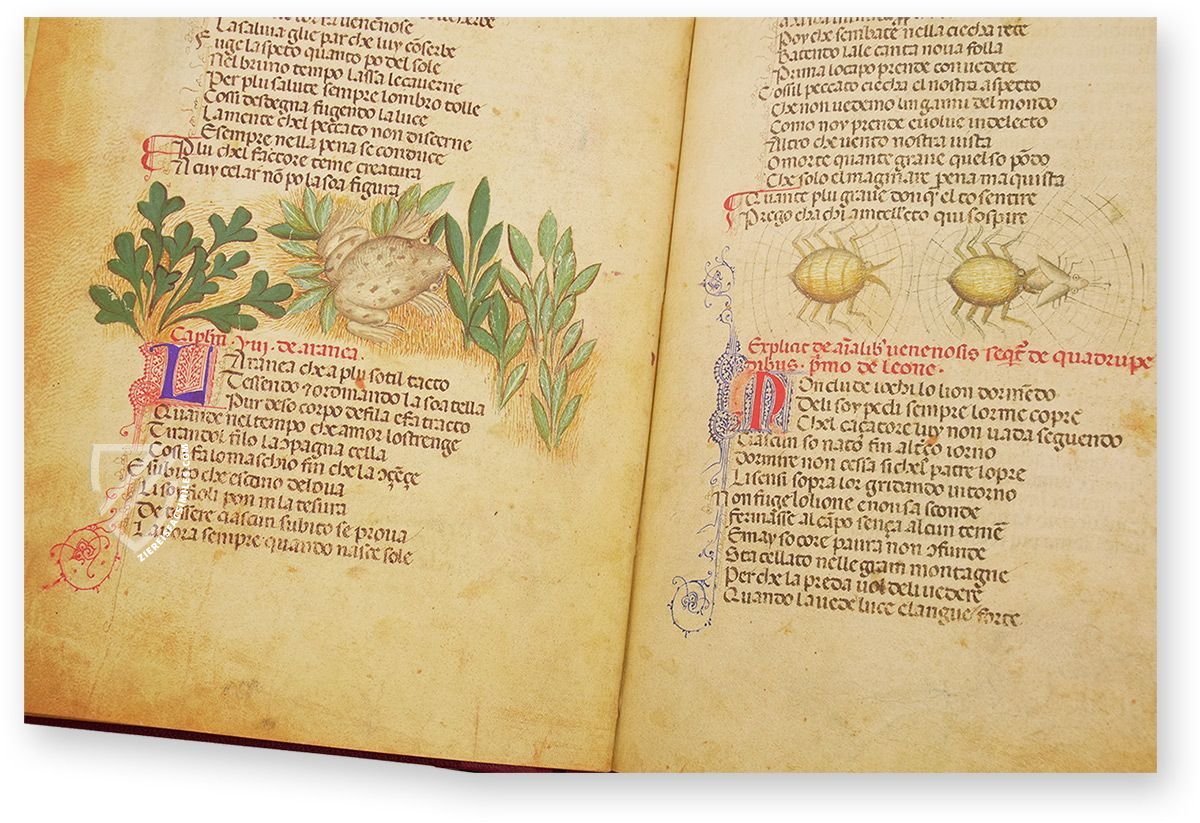 La salvia glie par che luy coserbe
uge la speto quanto po del sole
Nel bruno tempo lassa le caverne
Per plu salute sempre lombro tolle
Cossi desdegna fugendo la luce
La mente chel peccato non discerne
E sempre nella pena se conduce
Plu chel factore teme creatura
A cuy celar nõ po la soa figura
Capłm .viii. de aranea.
Laranea che a plu sotil tacto
Tessendo 7 ordinando la soa tella
Pur de so corpo de fila e fa tracto
Quande nel tempo che amor lo strenge
Tirandol filo la ɔpagna cella
Cossi fa lo maschio fin che la ɔçẽçe
E subito che escano de lova
Li soi fioli pon in la tesura
De tessere ciascun subito se prova
Lavora sempre quando nasce sole
Poy che se mbate nella ciecha rete
Batendo lale canta nova folla
Prima lo capo prende con vedete
Cossil peccato ciecha el nostra aspetto
Che non vedemo linganni del mondo
Como noy prende e volve in delecto
Altro che vento nostra vista
O morte quante grave quel so põdo
Che solo el maginare pena ma quista
Quante plu grave donq̃ el to sentire
Prego cha chi a intellecto qui sospire
Explicit de aĩalib' venenosis seqt̃ de quadrupe
dibus. p̃mo de leone.
Non clude iochi lo lion dormẽdo
Deli soy pedi sempre lorme copre
Chel caçatore luy non vada seguendo
Ciascun so nato fin al terço iorno
Dormire non cessa si chel patre lopre
Li sensi sopra lor gridando intorno
Non fuge lolione e non sa sconde
Fermasse al cãpo sença alcun temẽ
E may so core paura non ɔfunde
Sta cellato nelle gram montagne
Perche la preda vol deli vedere
Quando la vede luce clangue forte